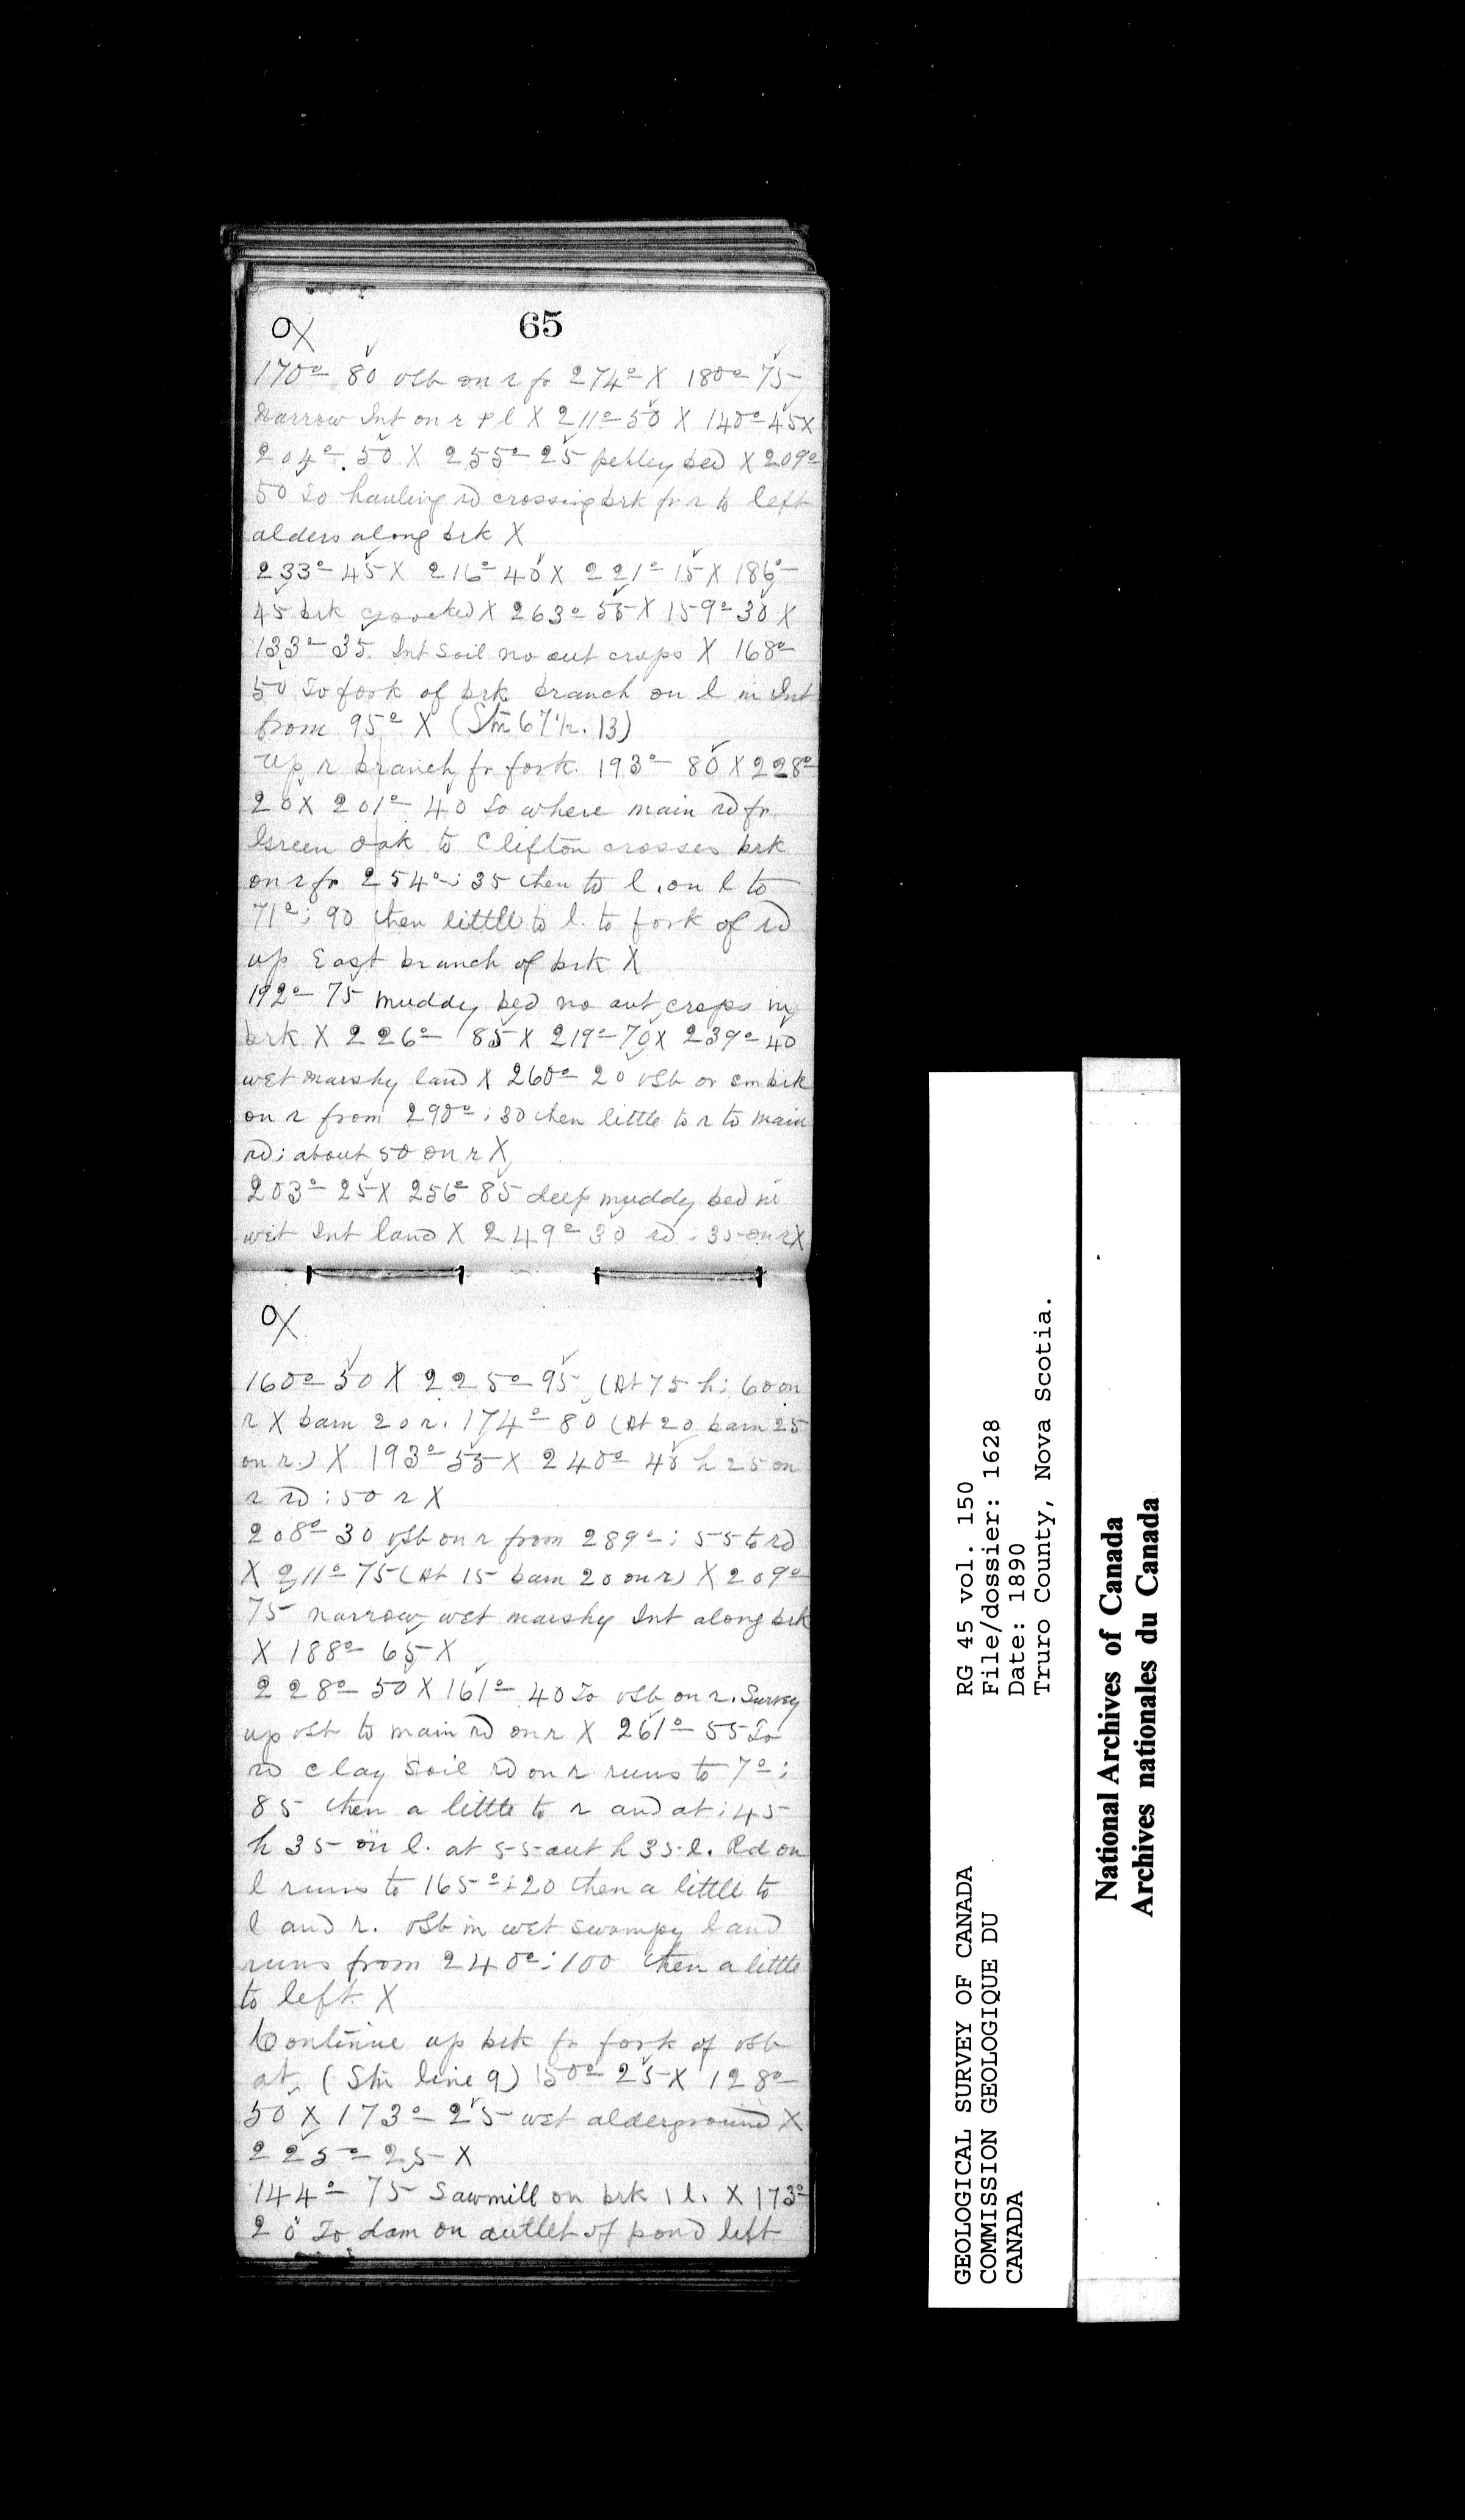 65
OX
170° 80 vsb on r fr 274° X 180° 75
Narrow Int on r & l X 211° 50 X 140° 45 X
204° 50 X 255° 25 pebley bed X 209°
50 To hauling rd crossing brk fr r to left
alders along brk X
233° 45 X 216° 40 X 221° 15 X 186°
45 brk crooked X 263° 55 X 159° 30 X
133° 35 Int soil no out crops X 168°
50 To fork of brk branch on l in Int
from 95° X (Stn 67 1/2. 13)
Up r branch fr fork. 193° 80 X 228°
20 X 201° 40 To where main rd fr
Green Oak to Clifton crosses brk
on r fr 254° : 35 then to l. on l to
71° : 90 then little to l. to fork of rd
up East branch of brk X
192° 75 muddy bed no out crops in
brk X 226° 85 X 219° 70 X 239° 40
wet marshy land X 260° 20 vsb or sm brk
on r from 290° : 30 then little to r to main
rd : about 50 on r X
203° 25 X 256° 85 deep muddy bed in
wet Int land X 249° 30 rd : 35 on r X
OX
160° 50 X 225° 95 (At 75 h : 60 on
r X barn 20 r. 174° 80 (At 20 barn 25
on r.) X 193° 55 X 240° 40 h 25 on
r rd : 50 r X
208° 30 vsb on r from 289° : 55 to rd
X 211° 75 (At 15 barn 20 on r) X 209°
75 narrow wet marshy Int along brk
X 188° 65 X
228° 50 X 161° 40 To vsb on r. Survey
up vsb to main rd on r X 261° 55 To
rd clay soil rd on r runs to 7° :
85 then a little to r and at : 45
h 35 on l. at 55 out h 35 l. Rd on
l runs to 165° : 20 then a little to
l and r. vsb in wet swampy land
runs from 240° : 100 then a little
to left X
Continue up brk fr fork of vsb
at (Stn line 9) 150° 25 X 128°
50 X 173° 25 wet alderground X
225° 25 X
144° 75 Sawmill on brk 1 l. X 173°
20 To dam on outlet of pond left
GEOLOGICAL SURVEY OF CANADA
COMMISSION GEOLOGIQUE DU
CANADA
RG 45 vol. 150
File/dossier: 1628
Date: 1890
Truro County, Nova Scotia.
National Archives of Canada
Archives nationales du Canada